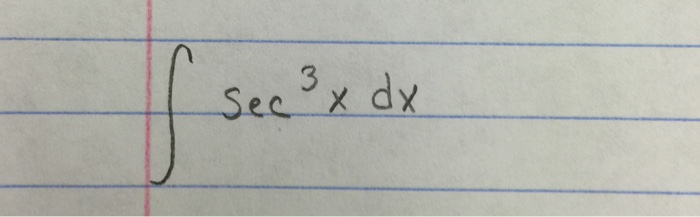 ∫ sec³x dx